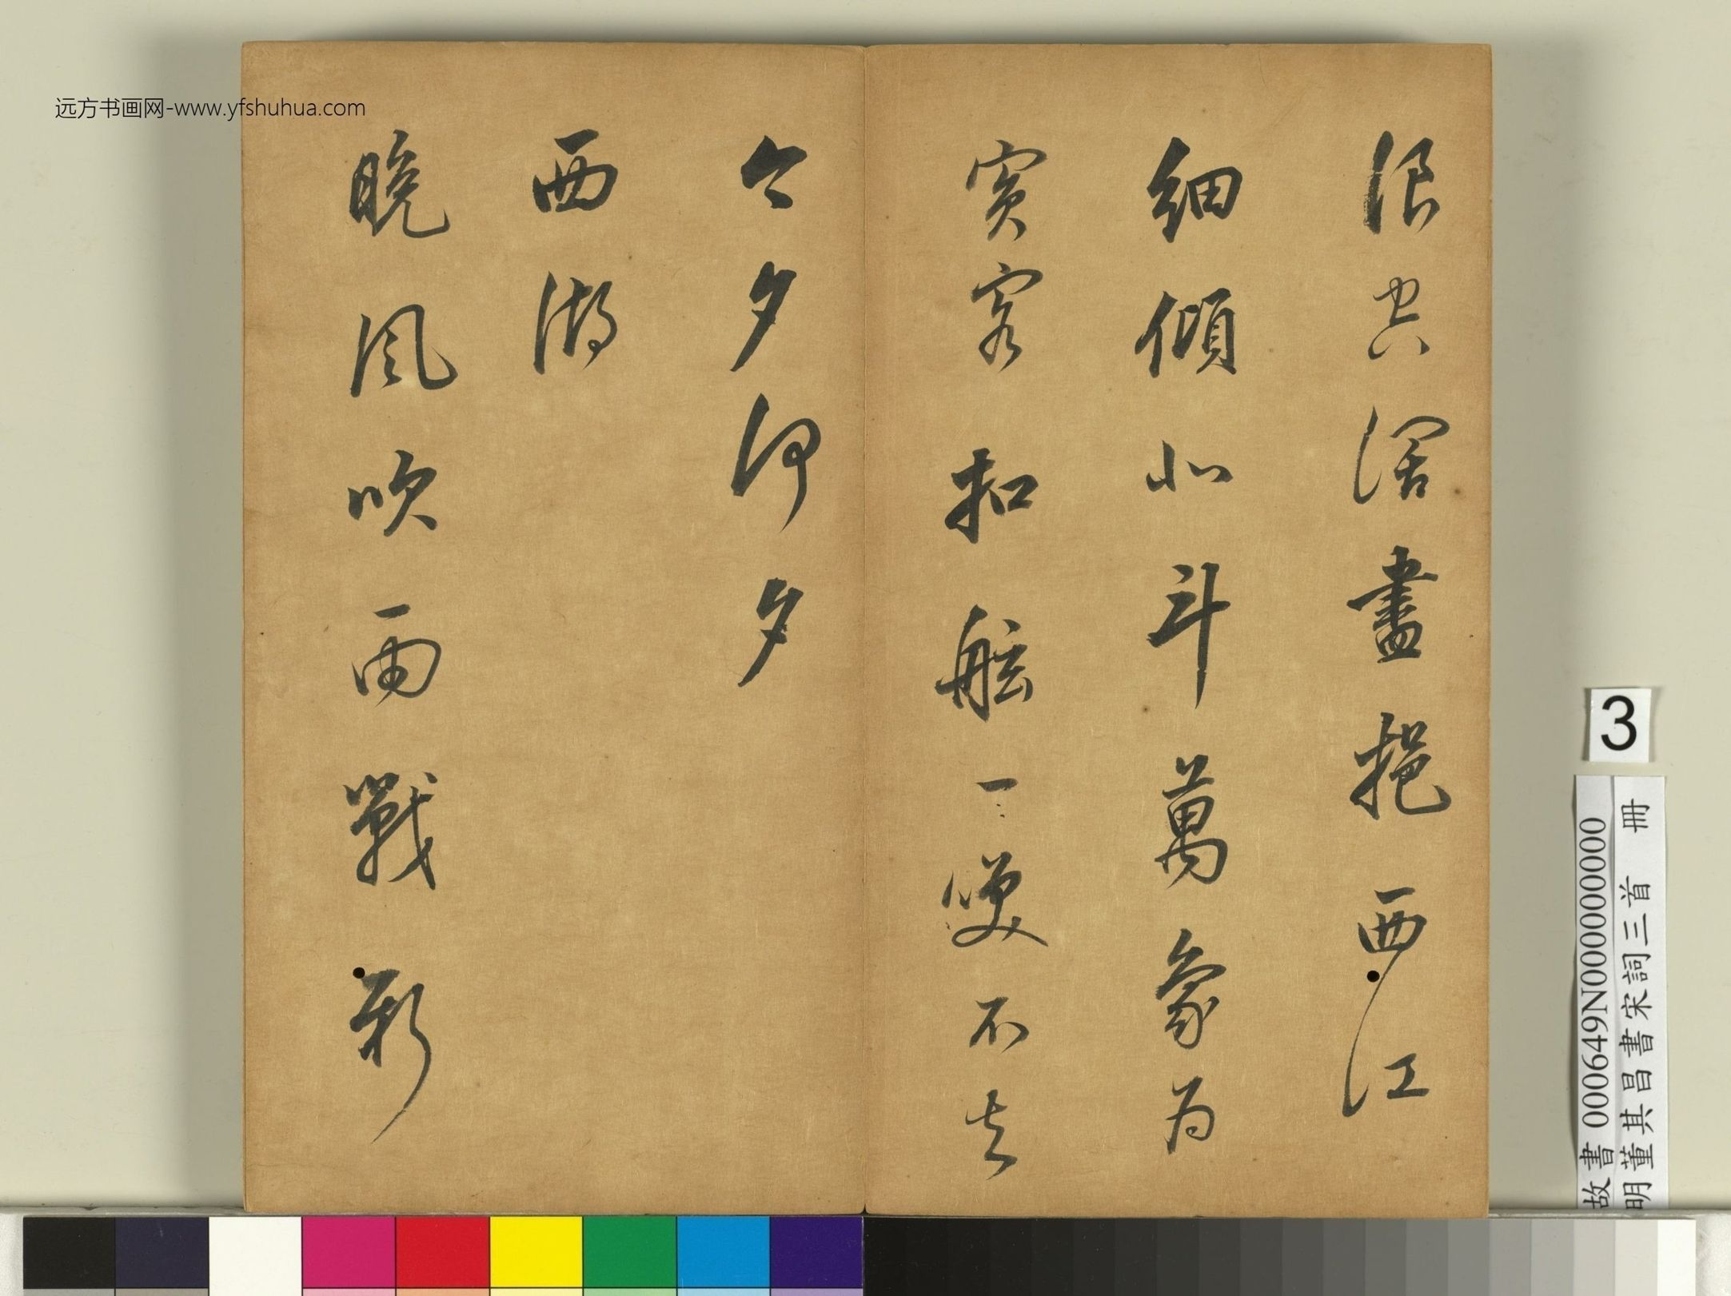 远方书画网-www.yfshuhua.com
浪空闊盡挹西江
細傾北斗萬象为
賓客扣舷一笑不知
今夕何夕
西湖
晚風吹雨戰新
3
故書 000649N000000000
明董其昌書宋詞三首 冊